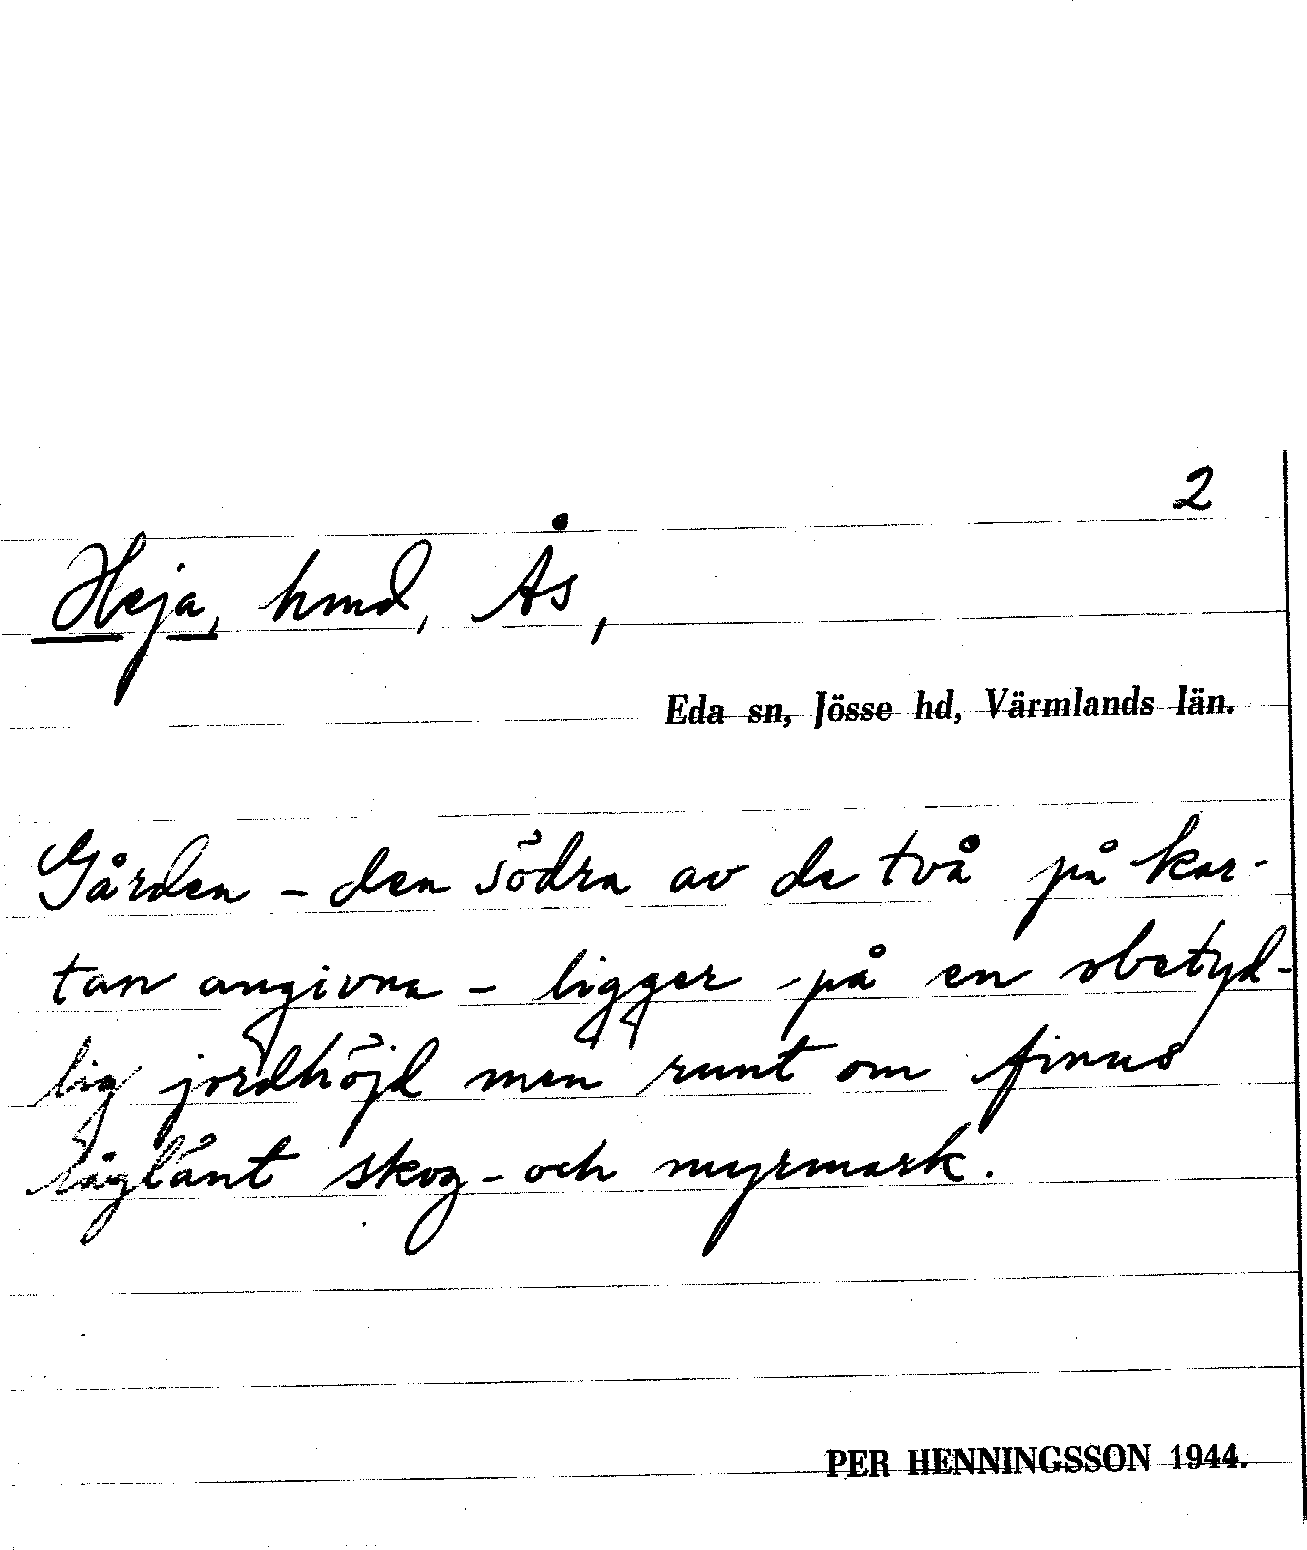 2
Heja, hmd, Ås,
Eda sn, Jösse hd, Värmlands län.
Gården - den södra av de två på kar-
tan angivna - ligger på en obetyd-
lig jordhöjd men runt om finns
låglänt skog- och myrmark.
PER HENNINGSSON 1944.